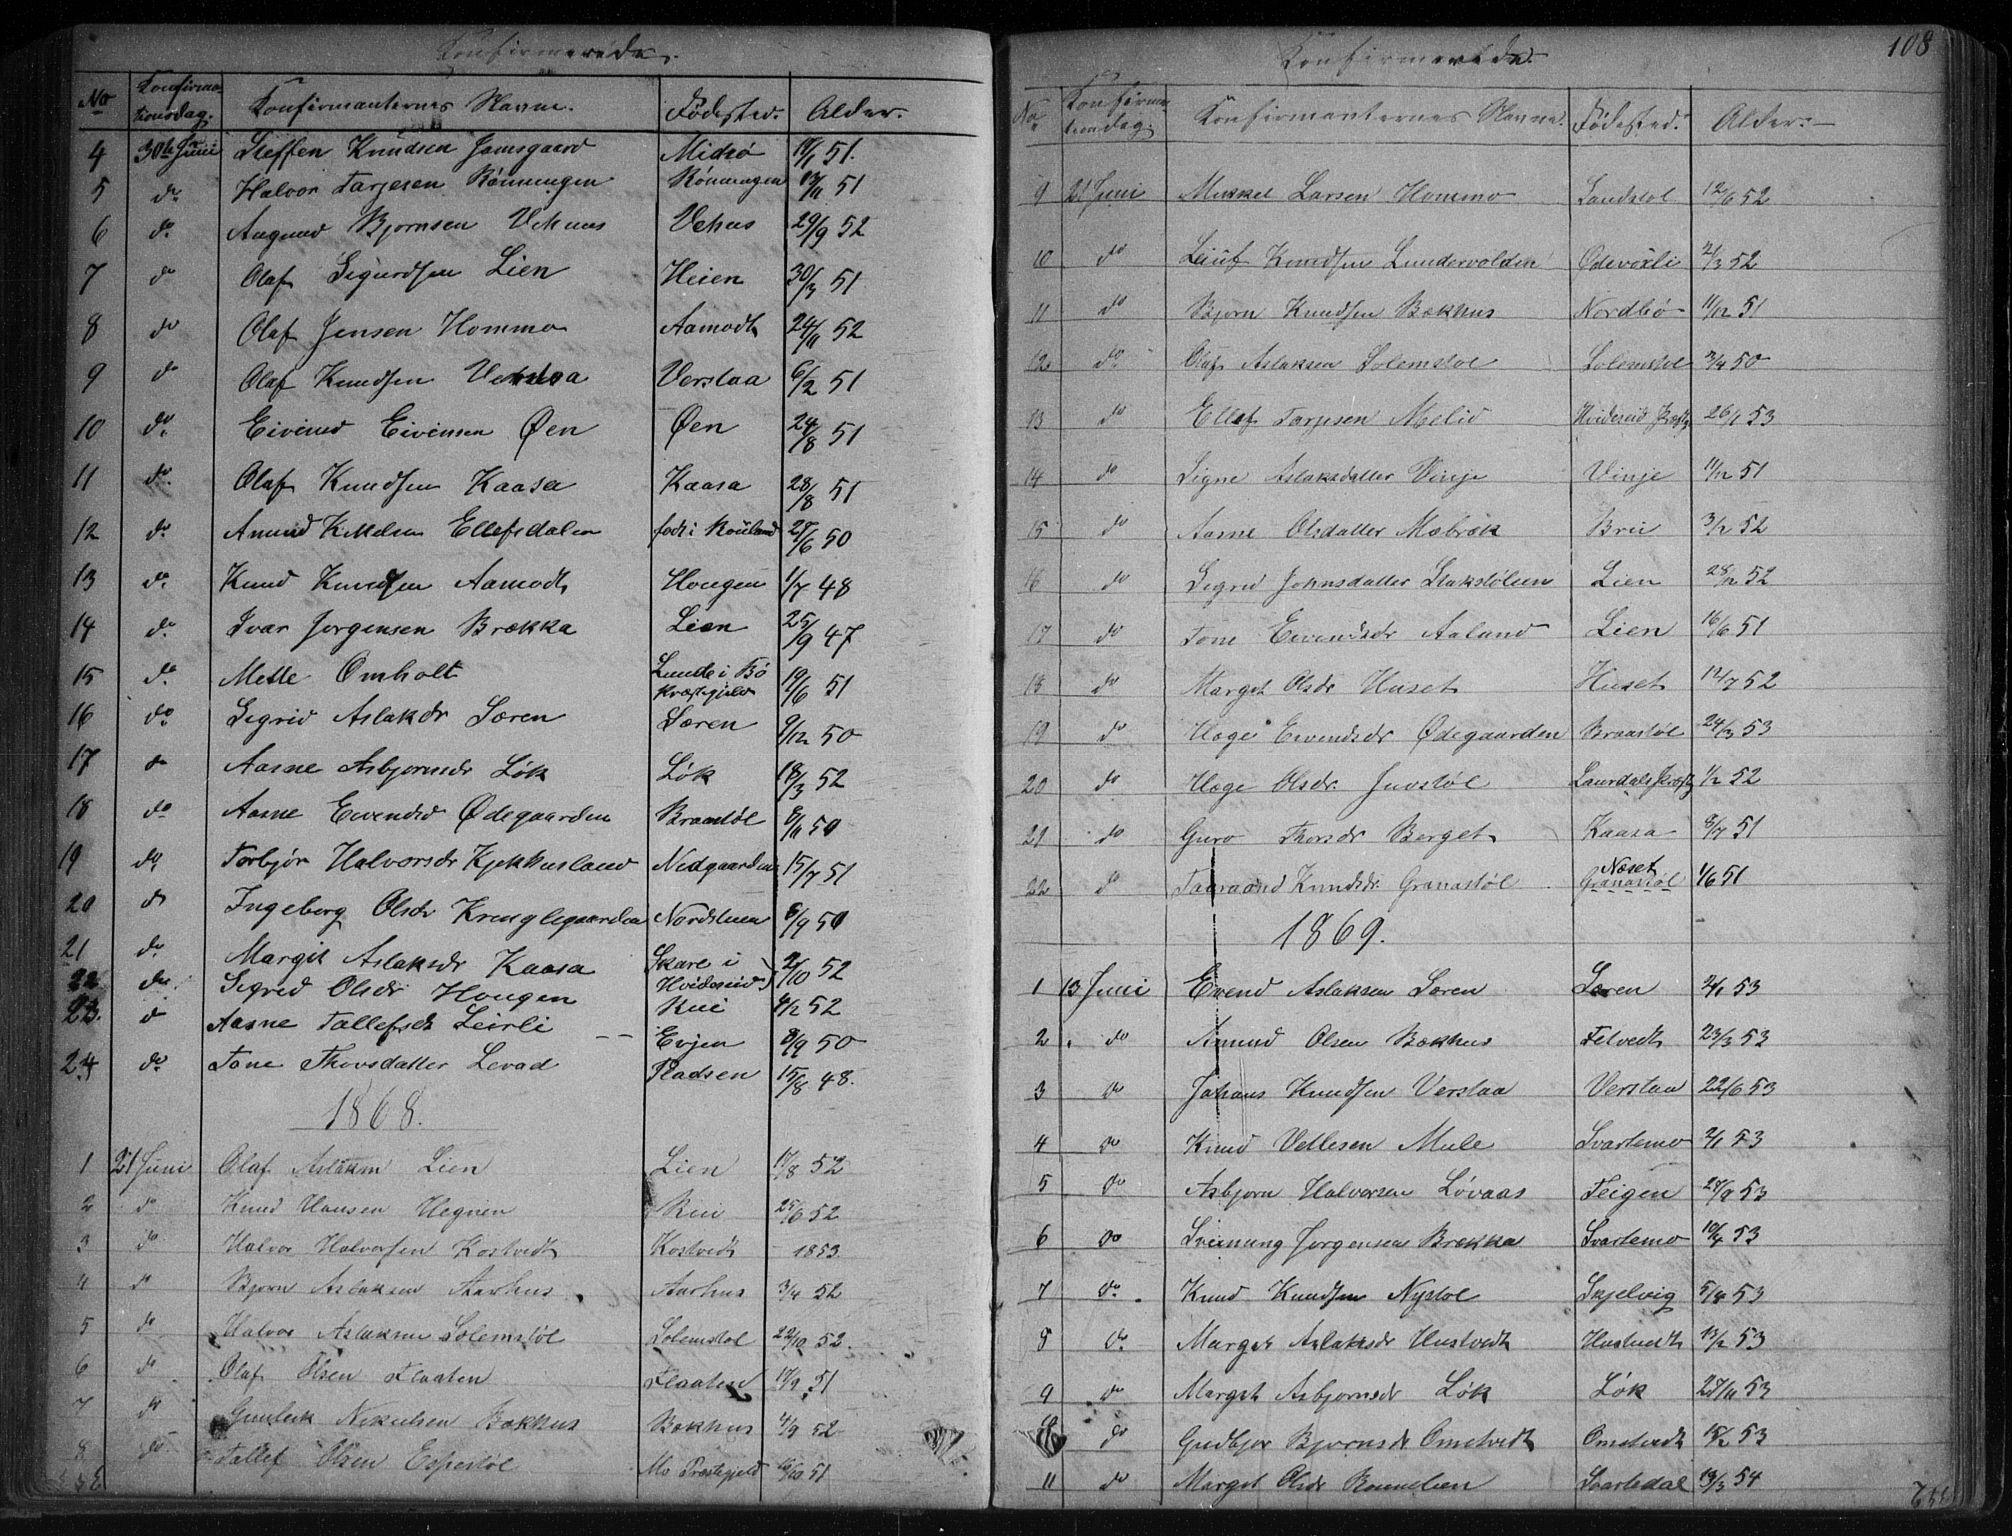 Konfirmerede.
No Konfirmationsdag. Konfirmanternes Navne. Fødested. Alder.
4 30te Juni Steffen Knudsen Jamsgaard Midbø 19/1 51.
5 do Halvor Tarjesen Rönningen Rönningen 13/11 51
6 do Augund Bjørnsen Vehuus Vehus 29/9 52
7 do Olaf Sigurdsen Lien Heien 30/3 51
8 do Olaf Jensen Hommo Aamodt 24/11 52
9 do Olaf Knudsen Verslaa Verslaa 6/2 51
10 do Eivind Eivinsen Øen Øen 24/8 51
11 do Olaf Knudsen Kaasa Kaasa 28/8 51
12 do Amund Kittelsen Ellefsdalen født i Rauland 25/6 50
13 do Knud Knudsen Aamodt Hougen 1/7 48
14 do Ivar Jorgensen Brækka Lien 25/9 47
15 do Mette Omholt Lunde i Bö Præstegjeld 19/6 51
16 do Sigrid Aslaksdr Særen Særen 9/12 50
17 do Aasne Asbjørnsdr Løk Løk 18/3 52
18 do Aasne Eivendsd Ødegaarden Braastøl 8/11 50
19 do Torbjør Halvorsdr Kjekhusland Nedgaarden 15/7 51
20 do Ingeborg Olsdr Kringlegaarden Nordstuen 6/9 50
21 do Margit Aslaksdr Kaasa Skare i Hvideseid 2/10 52
22 do Sigrid Olsdr Hougen Rui 4/2 52
23. do Aasne Tallefsdr Leirli Evjen 8/9 50
24 do Tone Thorsdatter Levad Pladsen 15/8 48.
1868.
1 21 Juni Olaf Aslaksen Lien Lien 17/8 52
2 do Knud Hansen Hegnen Rui 25/6 52
3 do Halvor Halvorsen Kostvedt Kostvedt 1853.
4 do Bjørn Aslaksen Aarhus Aarhus 3/4 52
5 do Halvor Aslaksen Solemstøl Solemstøl 22/10 52.
6 do Olaf Olsen Flaaten Flaaten 17/9 51
7 do Gunleik Nikulsen Bækhus Bækhus 4/9 52
8 do Tallef Olsen Esperstøl Mo Præstegjeld 16/10 51
Konfirmerede. 108
No. Konfirmationsdag. Konfirmanternes Navne. Fødested. Alder.
9 21 Juni Mikkel Larsen Hommo Sandstøl 12/6 52
10 do Leiuf Knudsen Lundervolden Odevoxli 2/3 52
11 do Bjorn Knudsen Bækhus Nordbö 11/12 51
12 do Olaf Aslaksen Solemstøl Solemstøl 3/4 50
13 do Ellef Tarjesen Melid Hvideseid Præstgj 26/1 53
14 do Signe Aslaksdatter Vinje Vinje 11/12 51
15 do Aasne Olsdatter Mæbræk Brii 3/12 52
16 do Sigrid Johnsdatter Stakstølien Lien 28/12 52
17 do Tone Eivendsdr Aaland Lien 16/6 51
18 do Margit Olsdr Huset Huset 12/7 52
19 do Hæge Eivendsdr Ødegaarden Braastøl 24/3 53
20 do Hæge Olsdr. Juvstøl Laurdals Præstgj 1/12 52
21 do Guro Thorsdr Berget Kaasa 8/7 51
22 do Taaraand Knudsdr. Granastøl Næset Granastøl 1/6 51
1869.
1 13 Juni Evend Aslaksen Særen Særen 2/1 53
2 do Amund Olsen Bækhus Felvedt 23/3 53
3 do Johans Knudsen Verslaa Verslaa 22/6 53
4 do Knud Vetlesen Mule Svartemo 2/1 53
5 do Asbjørn Halvorsen Løvaas Teigen 24/9 53
6 do Sveinung Jørgensen Brækka Svartemo 10/4 53
7 do Knud Knudsen Nystøl Skjelvig 5/8 53
8 do Margit Aslaksdr Hustvedt Hustvedt 13/2 53
9 do Margit Asbjørnsdr Løk Løk 27/11 53
do Gudbjør Bjørnsdr Omtvedt Omtvedt 15/2 53
11 do Margit Olsdr Rønnelien Svartedal 19/3 54